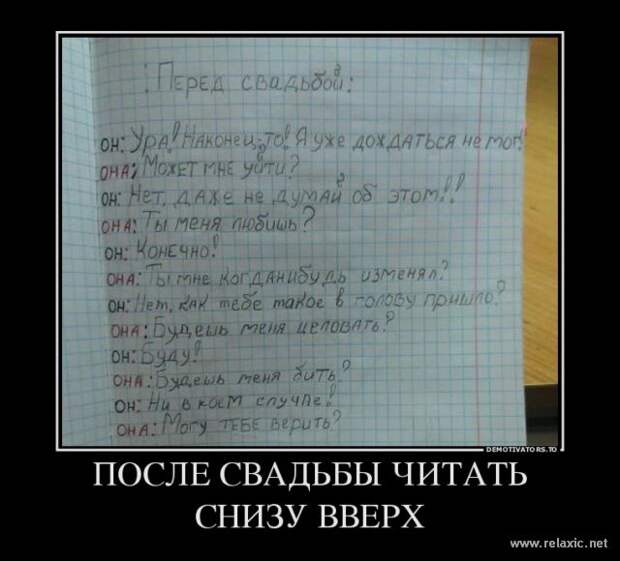 Перед свадьбой:
он: Ура! Наконец-то! Я уже дождаться не мог!
она: Может мне уйти?
он: Нет, даже не думай об этом!!
она: Ты меня любишь?
он: Конечно!
она: Ты мне когданибудь изменял?
он: Нет, как тебе такое в голову пришло?
она: Будешь меня целовать?
он: Буду!
она: Будешь меня бить?
он: Ни в коем случпе!
она: Могу тебе верить?
DEMOTIVATORS.TO
ПОСЛЕ СВАДЬБЫ ЧИТАТЬ
СНИЗУ ВВЕРХ
www.relaxic.net